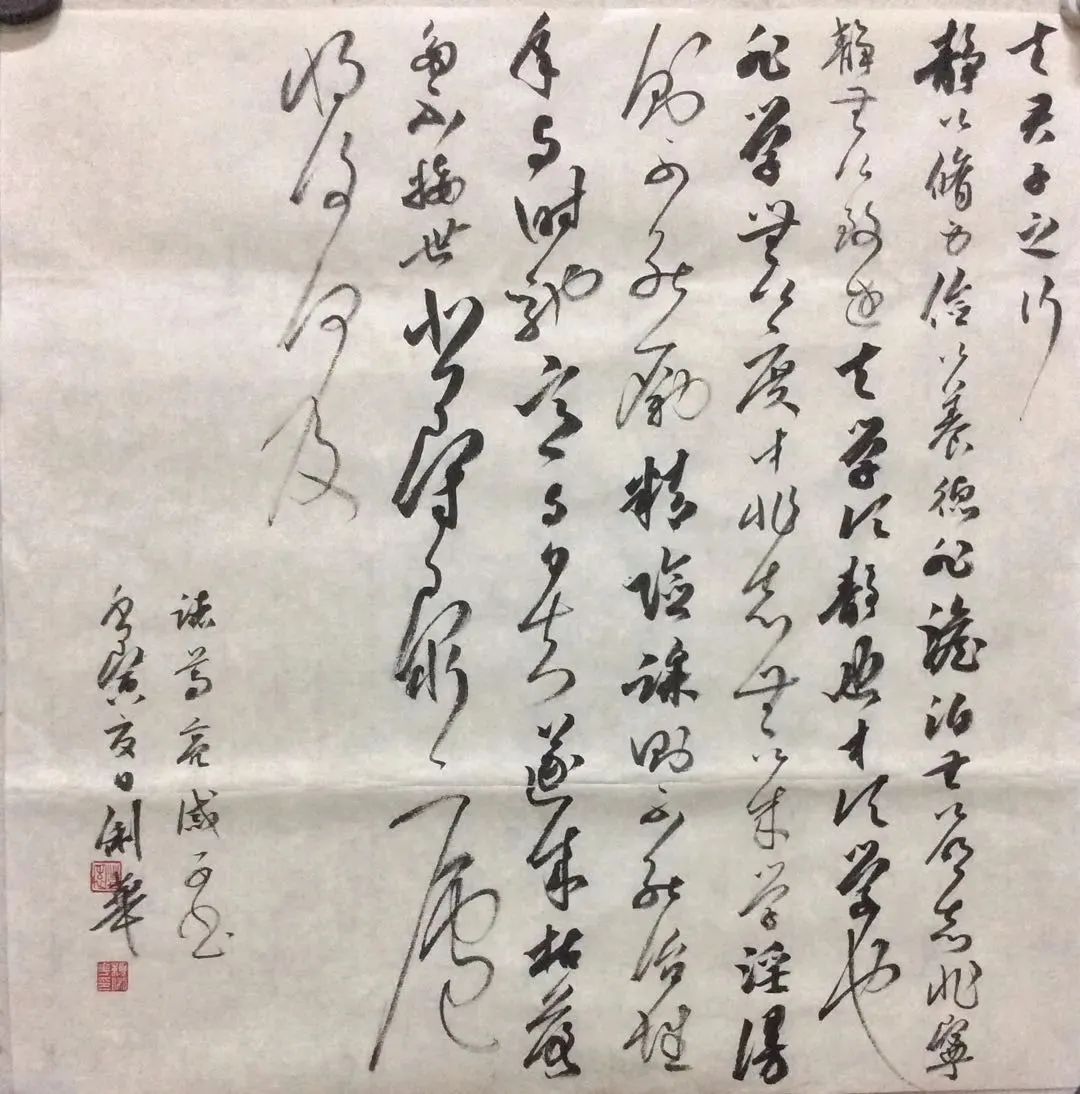 夫君子之行
静以脩身俭以养德非澹泊无以明志非宁
静无以致远夫学须静也才须学也
非学無以广才非志無以成学淫漫
则不能励精险躁则不能治性
年与时驰意与日去遂成枯落
多不接世悲守穷庐
将复何及
诸葛亮诫子书
癸日華